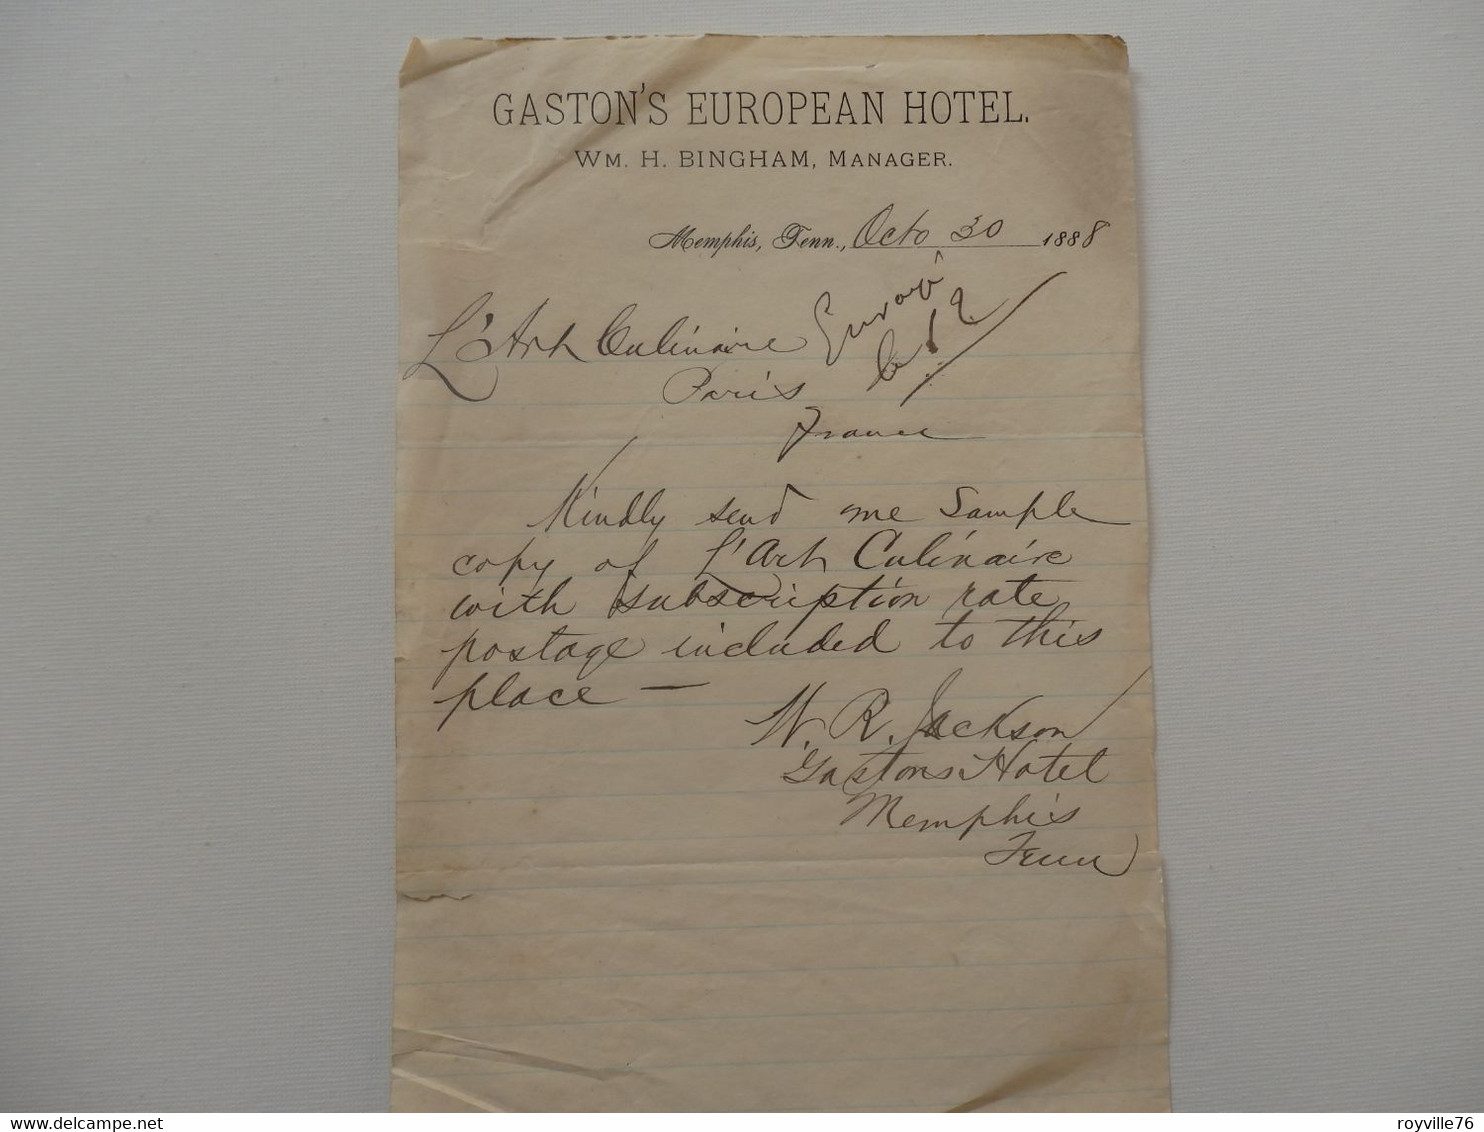 GASTON'S EUROPEAN HOTEL.
WM. H. BINGHAM, MANAGER.
Memphis, Tenn., Octo 30 1888
L'Art Culinaire
Paris
France
Envoyé
le 12
Kindly send me Sample
copy of L'Art Culinaire
with subscription rate
postage included to this
place —
W. R. Jackson
Gastons Hotel
Memphis
Tenn
delcampe.net
royville76